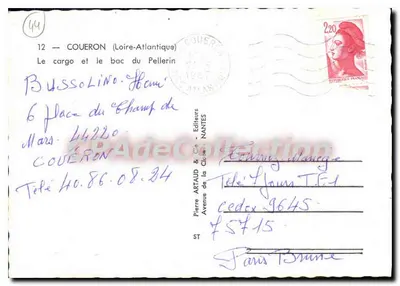 44
12 — COUERON (Loire-Atlantique)
Le cargo et le bac du Pellerin
BUSSOLINO Henri
6 place du Champ de
Mars. 44220
COUERON
Télé 40.86.08.24
APRAdeCollection
Pierre ARTAUD & Editeurs
Avenue de la Close - NANTES
ST
2,20
Télé 7 Jours
cedex 9645
75715
Paris Brune